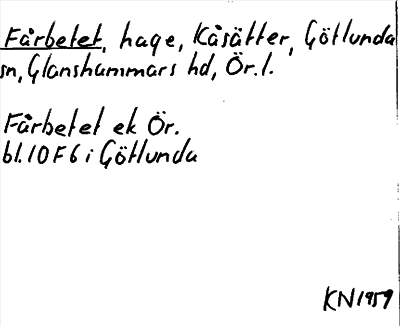 Fårbetet, hage, Kåsätter, Götlunda
sn, Glanshammars hd, Ör.l.
Fårbetet ek Ör.
bl.10F6 i Götlunda
KN1959